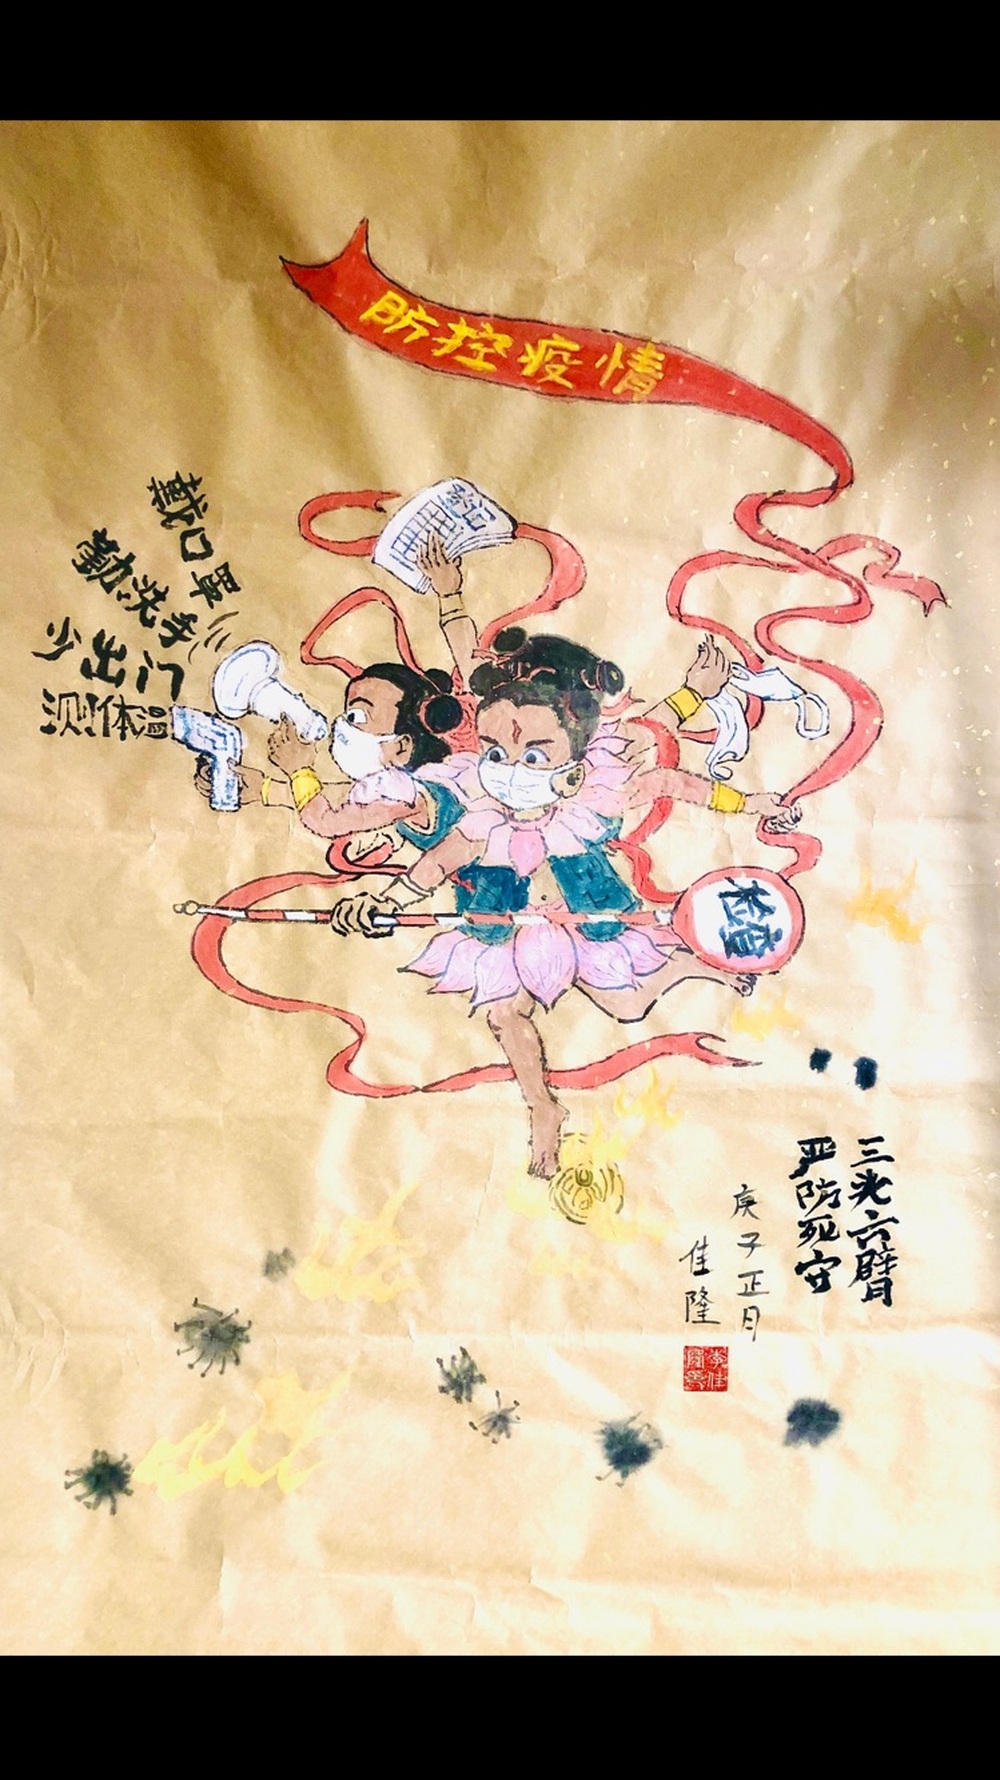 防控疫情
戴口罩
勤洗手
少出门
测体温
检查
三头六臂
严防死守
庚子正月
佳隆